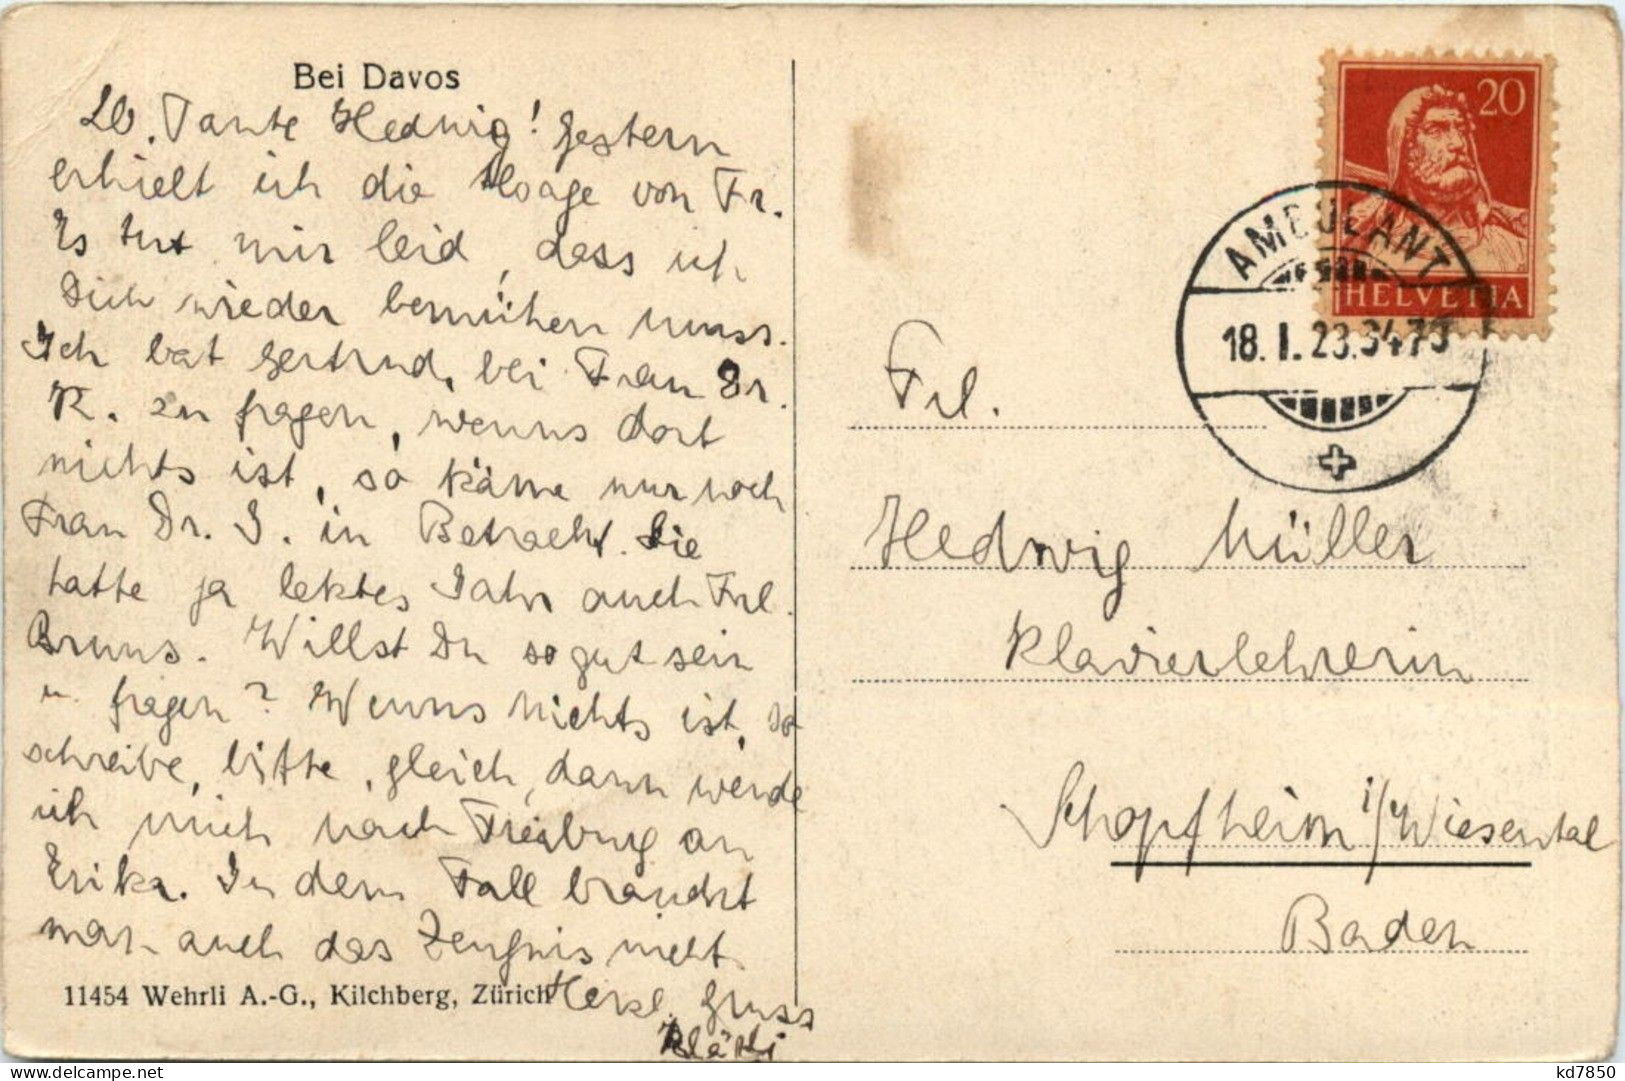 Bei Davos
Lb. Tante Hedwig! Gestern
erhielt ich die Absage von Fr.
Es tut mir leid, dass ich
Dich wieder bemühen muss.
Ich bat Gertrud, bei Frau Dr.
K. zu fragen, wenns dort
nichts ist, so käme nur noch
Frau Dr. S. in Betracht. Sie
hatte ja letztes Jahr auch Frl.
Bruns. Willst Du so gut sein
u. fragen? Wenns nichts ist, so
schreibe, bitte, gleich, dann wende
ich mich nach Freiburg an
Erika. In dem Fall braucht
man auch das Zeugnis nicht
Herzl. Gruss
Kläti
11454 Wehrli A.-G., Kilchberg, Zürich
20
HELVETIA
AMBULANT
18. I. 23
Frl.
Hedwig Müller
Klavierlehrerin
Schopfheim i/Wiesental
Baden
kd7850